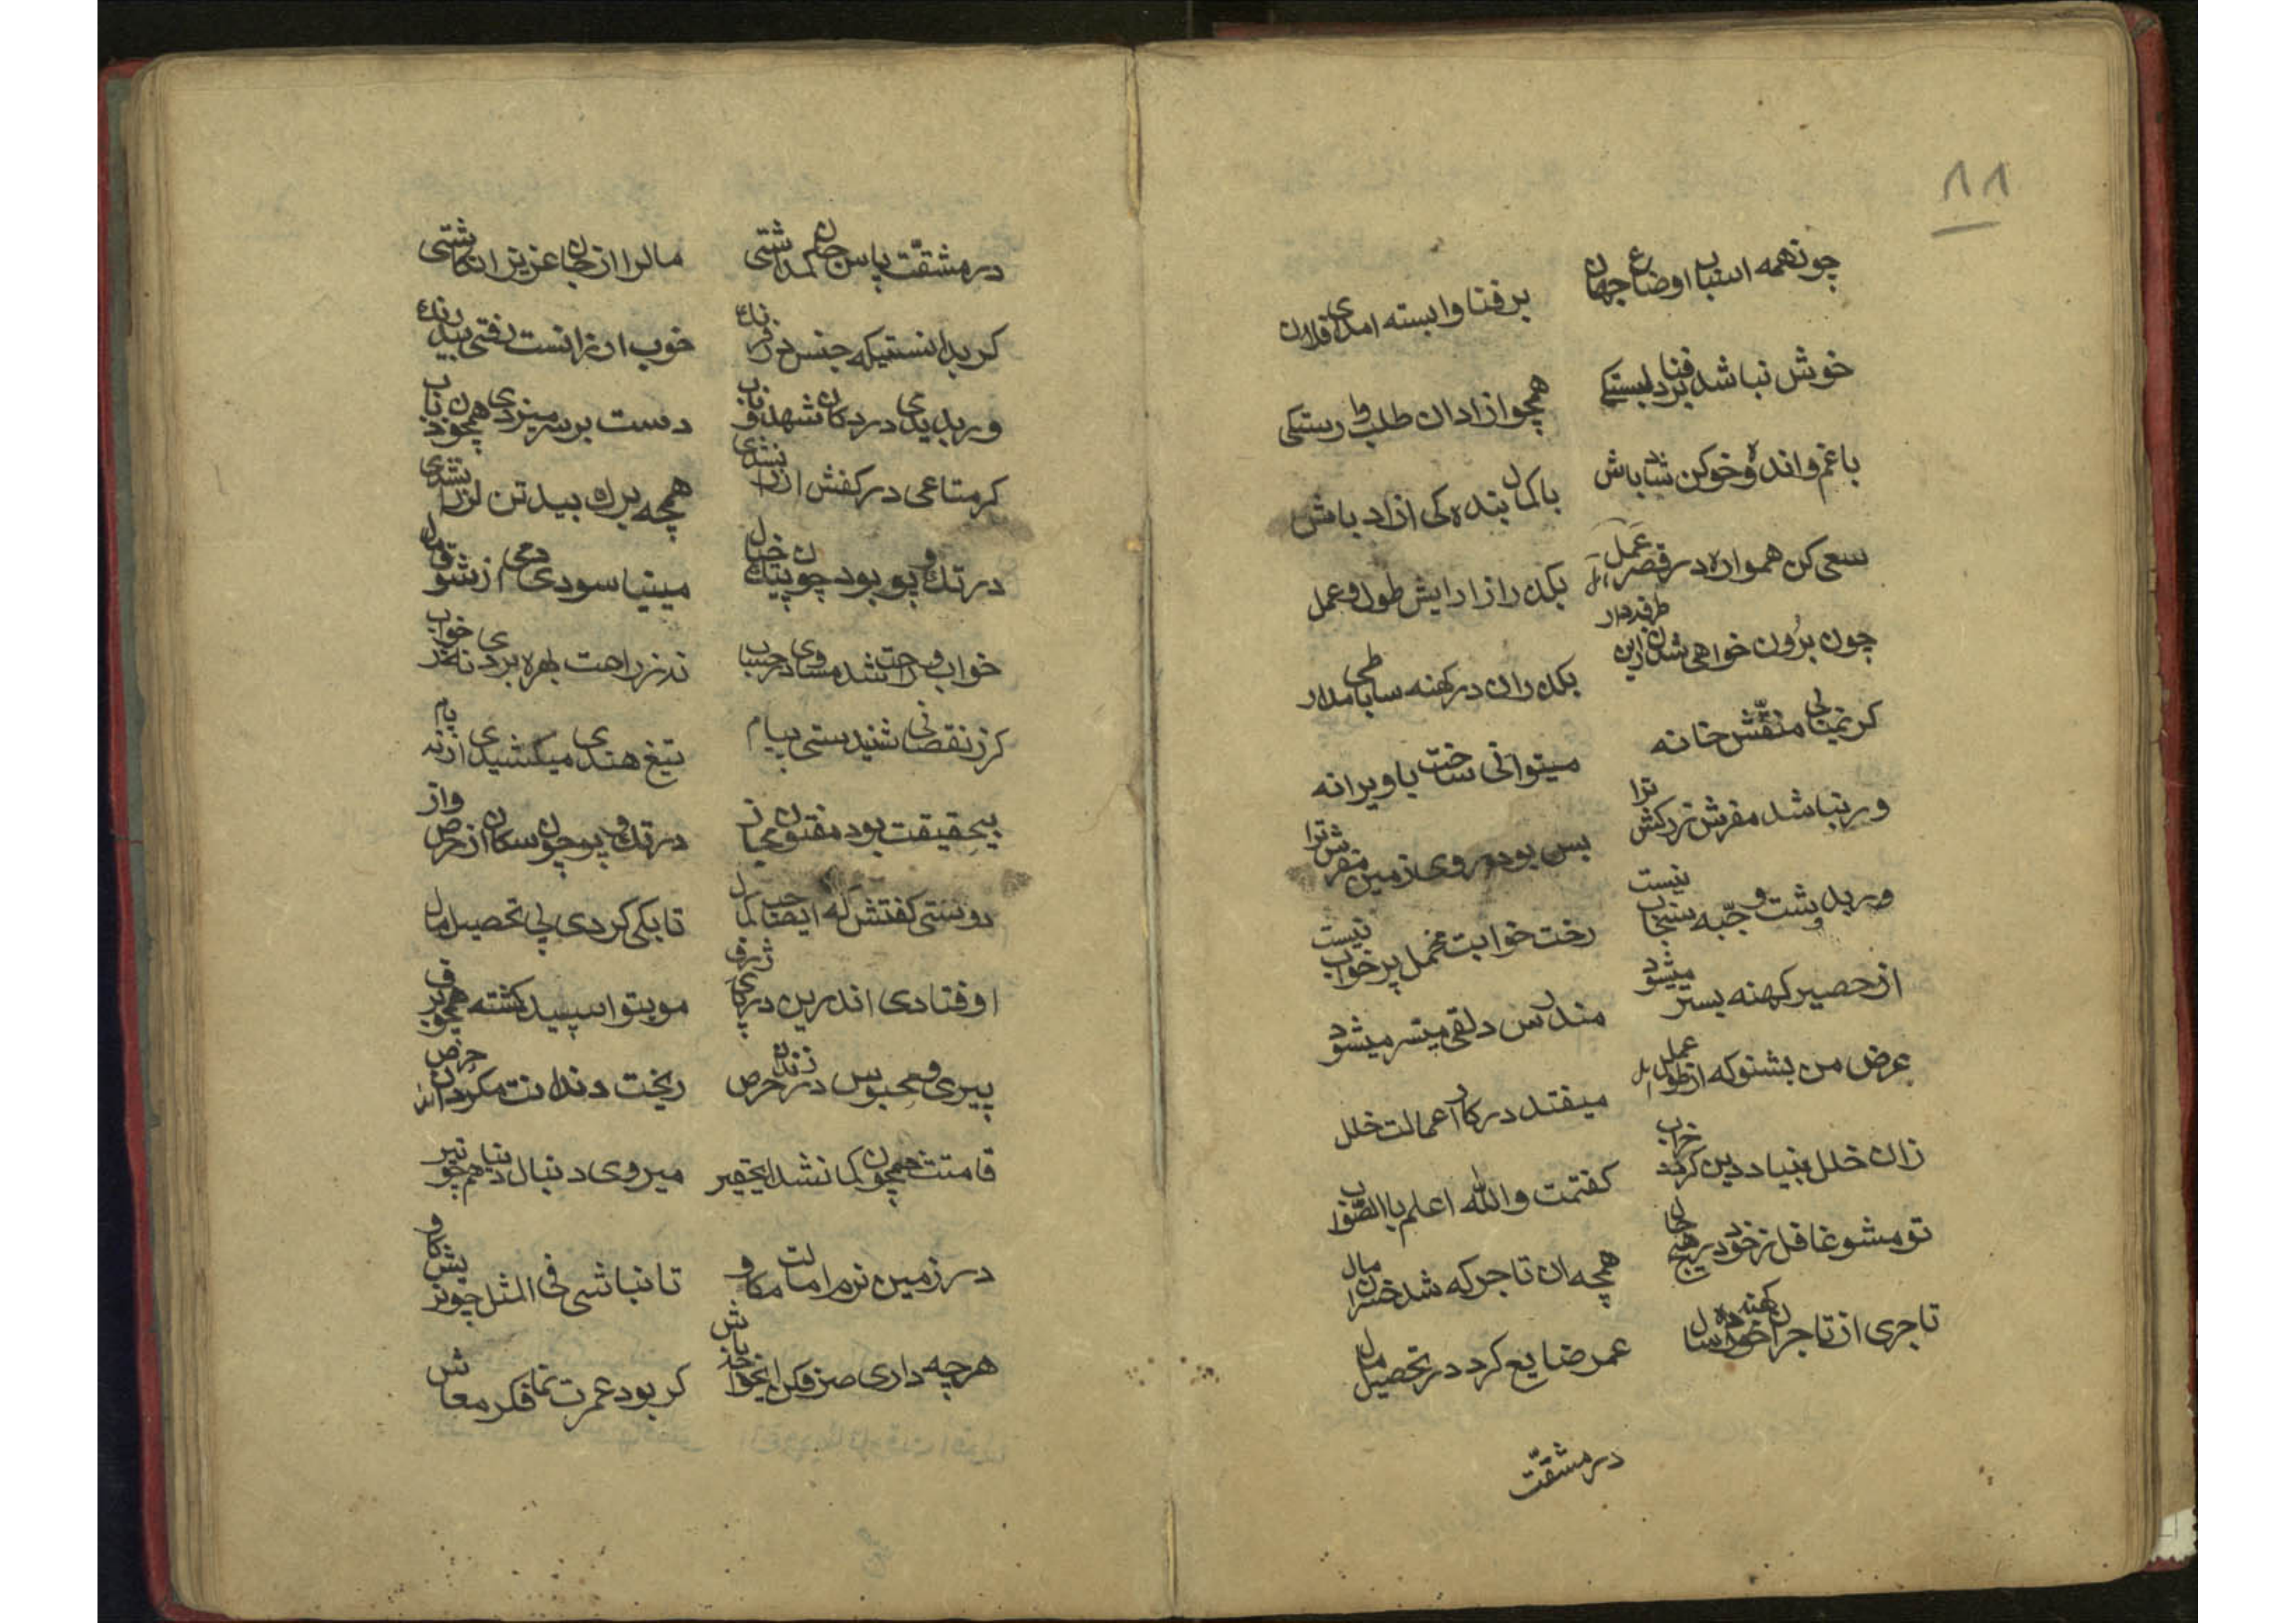 ١١
چونهمه اسباب اوضاع جهان    برفنا وابسته امد ای فلان
خوش نباشد برفنا دلبستیکی    همچو ازادان طلب وا رستیکی
با غم و اندوه خوکن شاد باش    با کمال بنده کی ازاد باش
سعی کن همواره در قصر عمل    بکذر از ارایش طول و عمل
چون برون خواهی شدن زین طرفه دار    بکذران در کهنه ساباطی مدار
کر نمیابی منقّش خانه    میتوانی ساخت با ویرانه
ور نباشد مفرش زرکش ترا    بس بود روی زمین مفرش ترا
ور بدوشت جبّه سنجاب نیست    رخت خوابت مخمل پر خواب نیست
از حصیر کهنه بستر میشود    مندرس دلقی میسّر میشود
عرض من بشنو که از طول عمل    میفتد در کار اعمالت خلل
زان خلل بنیاد دین کردد خراب    کفتمت والله اعلم باالصّواب
تو مشو غافل ز خود در هیچ حال    همچه ان تاجر که شد خسران مال
تاجری از تاجران کهنه سال    عمر ضایع کرد در تحصیل مال
در مشقّت
در مشقّت پاس جان کم داشتی    مالرا از جان عزیز انکاشتی
کر بدانستیکه جنس در فرنک    خوب ارزانست رفتی بیدرنک
ور بدیدی در دکان شهد ناب    دست بر سر میزدی همچون ذباب
کر متاعی در کفش ارزان نشدی    همچه برك بید تن لرزان شدی
در تك و پو بود چون پیك خیال    مینیاسودی دمی از شوق مال
خواب و راحت شد مساوی در حساب    نه ز راحت بهره بردی نه ز خواب
کر ز نقصانی شنیدستی پیام    تیغ هندی میکشیدی از نیام
بیحقیقت بود مفتون مجاز    در تك و پو چون سکان از حرص و از
دوستی کفتش که ای صاحب کمال    تا بکی کردی پی تحصیل مال
اوفتادی اندرین دریای ژرف    مو بتو اسپید کشته همچو برف
پیری و محبوس در زندان حرص    ریخت دندانت مکر دندان حرص
قامتت همچون کمان شد ای حقیر    میروی دنبال دنیا همچو تیر
در زمین نرم امالت مکاو    تا نباشی فی المثل چون بز شکاو
هرچه داری صرف کن ایخواجه باش    کر بود عمرت نما فکر معاش